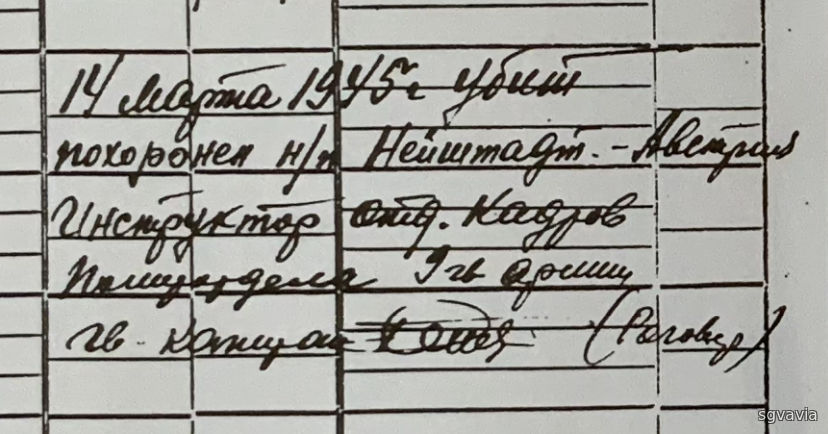 14 Марта 1945 г убит
похоронен н/п Нейштадт. - Австрия
Инструктор отд. Кадров
Политотдела 9 гв армии
гв. капитан
sgvavia